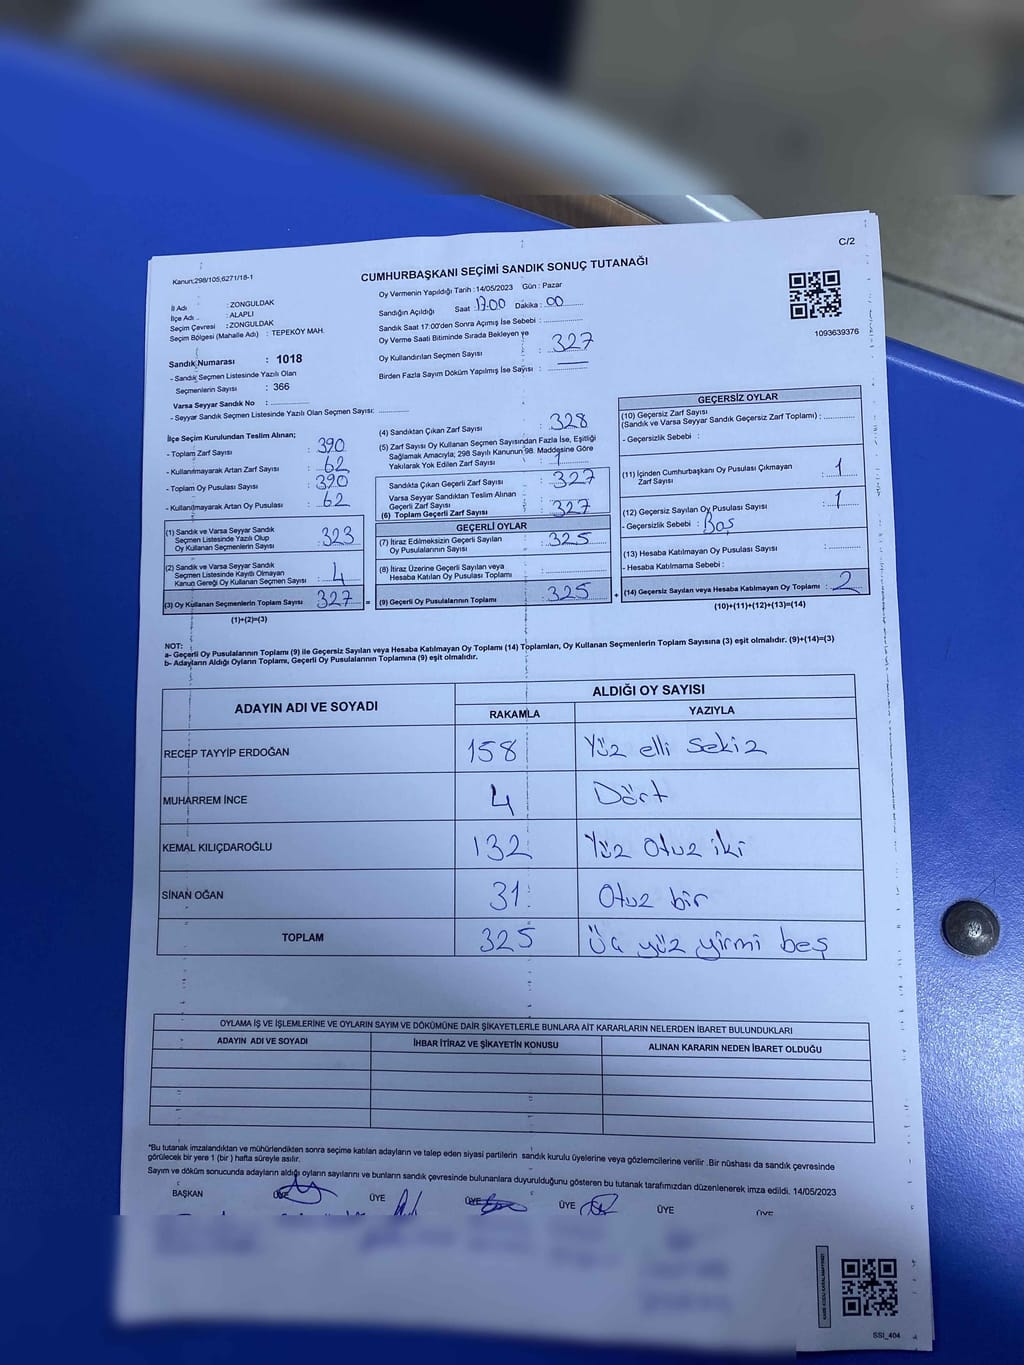 C/2
Kanun;298/105;6271/18-1
CUMHURBAŞKANI SEÇİMİ SANDIK SONUÇ TUTANAĞI
İl Adı : ZONGULDAK
İlçe Adı : ALAPLI
Seçim Çevresi : ZONGULDAK
Seçim Bölgesi (Mahalle Adı) : TEPEKÖY MAH.
Sandık Numarası : 1018
- Sandık Seçmen Listesinde Yazılı Olan
Seçmenlerin Sayısı : 366
Varsa Seyyar Sandık No :
- Seyyar Sandık Seçmen Listesinde Yazılı Olan Seçmen Sayısı:
Oy Vermenin Yapıldığı Tarih : 14/05/2023 Gün : Pazar
Sandığın Açıldığı Saat 17.00 Dakika : 00
Sandık Saat 17:00'den Sonra Açımış İse Sebebi :
Oy Verme Saati Bitiminde Sırada Bekleyen ve
Oy Kullandırılan Seçmen Sayısı : 327
Birden Fazla Sayım Döküm Yapılmış İse Sayısı :
1093639376
İlçe Seçim Kurulundan Teslim Alınan;
- Toplam Zarf Sayısı : 390
- Kullanılmayarak Artan Zarf Sayısı : 62
- Toplam Oy Pusulası Sayısı : 390
- Kullanılmayarak Artan Oy Pusulası : 62
(1) Sandık ve Varsa Seyyar Sandık
Seçmen Listesinde Yazılı Olup
Oy Kullanan Seçmenlerin Sayısı : 323
(2) Sandık ve Varsa Seyyar Sandık
Seçmen Listesinde Kayıtlı Olmayan
Kanun Gereği Oy Kullanan Seçmen Sayısı : 4
(3) Oy Kullanan Seçmenlerin Toplam Sayısı : 327
(1)+(2)=(3)
(4) Sandıktan Çıkan Zarf Sayısı : 328
(5) Zarf Sayısı Oy Kullanan Seçmen Sayısından Fazla İse, Eşitliği
Sağlamak Amacıyla; 298 Sayılı Kanunun 98. Maddesine Göre
Yakılarak Yok Edilen Zarf Sayısı : 1
Sandıkta Çıkan Geçerli Zarf Sayısı : 327
Varsa Seyyar Sandıktan Teslim Alınan
Geçerli Zarf Sayısı
(6) Toplam Geçerli Zarf Sayısı : 327
GEÇERLİ OYLAR
(7) İtiraz Edilmeksizin Geçerli Sayılan
Oy Pusulalarının Sayısı : 325
(8) İtiraz Üzerine Geçerli Sayılan veya
Hesaba Katılan Oy Pusulası Toplamı :
= (9) Geçerli Oy Pusulalarının Toplamı : 325
GEÇERSİZ OYLAR
(10) Geçersiz Zarf Sayısı
(Sandık ve Varsa Seyyar Sandık Geçersiz Zarf Toplamı) :
- Geçersizlik Sebebi :
(11) İçinden Cumhurbaşkanı Oy Pusulası Çıkmayan
Zarf Sayısı : 1
(12) Geçersiz Sayılan Oy Pusulası Sayısı : 1
- Geçersizlik Sebebi : Boş
(13) Hesaba Katılmayan Oy Pusulası Sayısı :
- Hesaba Katılmama Sebebi :
+ (14) Geçersiz Sayılan veya Hesaba Katılmayan Oy Toplamı : 2
(10)+(11)+(12)+(13)=(14)
NOT:
a- Geçerli Oy Pusulalarının Toplamı (9) ile Geçersiz Sayılan veya Hesaba Katılmayan Oy Toplamı (14) Toplamları, Oy Kullanan Seçmenlerin Toplam Sayısına (3) eşit olmalıdır. (9)+(14)=(3)
b- Adayların Aldığı Oyların Toplamı, Geçerli Oy Pusulalarının Toplamına (9) eşit olmalıdır.
ADAYIN ADI VE SOYADI
ALDIĞI OY SAYISI
RAKAMLA YAZIYLA
RECEP TAYYİP ERDOĞAN 158 Yüz elli sekiz
MUHARREM İNCE 4 Dört
KEMAL KILIÇDAROĞLU 132 Yüz Otuz iki
SİNAN OĞAN 31 Otuz bir
TOPLAM 325 Üç yüz yirmi beş
OYLAMA İŞ VE İŞLEMLERİNE VE OYLARIN SAYIM VE DÖKÜMÜNE DAİR ŞİKAYETLERLE BUNLARA AİT KARARLARIN NELERDEN İBARET BULUNDUKLARI
ADAYIN ADI VE SOYADI İHBAR İTİRAZ VE ŞİKAYETİN KONUSU ALINAN KARARIN NEDEN İBARET OLDUĞU
*Bu tutanak imzalandıktan ve mühürlendikten sonra seçime katılan adayların ve talep eden siyasi partilerin sandık kurulu üyelerine veya gözlemcilerine verilir .Bir nüshası da sandık çevresinde
görülecek bir yere 1 (bir ) hafta süreyle asılır.
Sayım ve döküm sonucunda adayların aldığı oyların sayılarını ve bunların sandık çevresinde bulunanlara duyurulduğunu gösteren bu tutanak tarafımızdan düzenlenerek imza edildi. 14/05/2023
BAŞKAN ÜYE ÜYE ÜYE ÜYE ÜYE ÜYE
SSI_404